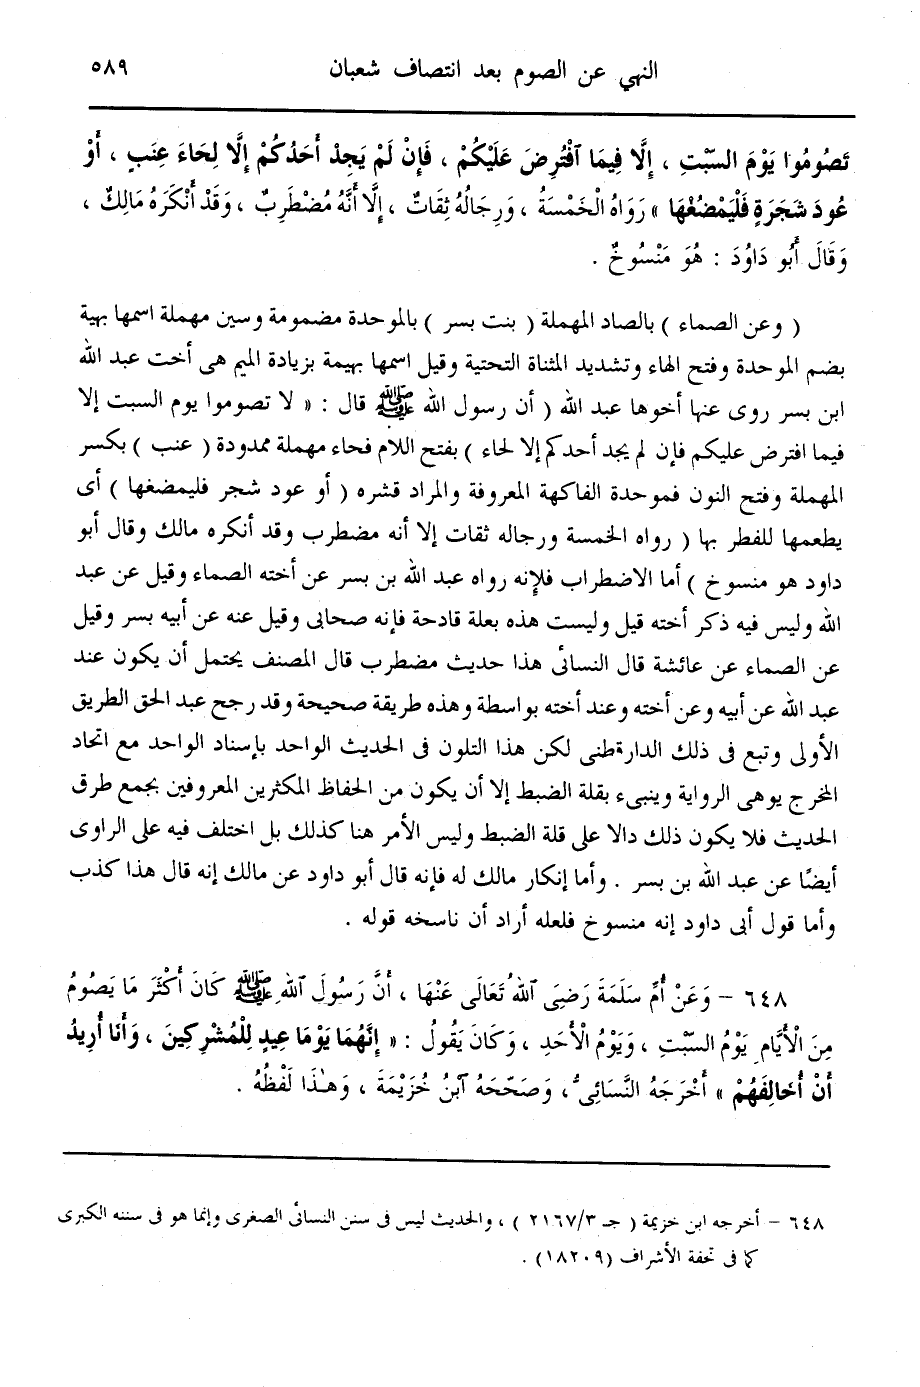 النهي عن الصوم بعد انتصاف شعبان ٥٨٩
تَصُومُوا يَوْمَ السَّبْتِ ، إِلَّا فِيمَا ٱفْتُرِضَ عَلَيْكُمْ ، فَإِنْ لَمْ يَجِدْ أَحَدُكُمْ إِلَّا لِحَاءَ عِنَبٍ ، أَوْ
عُودَ شَجَرَةٍ فَلْيَمْضُغْهَا » رَوَاهُ الْخَمْسَةُ ، وَرِجَالُهُ ثِقَاتٌ ، إِلَّا أَنَّهُ مُضْطَرِبٌ ، وَقَدْ أَنْكَرَهُ مَالِكٌ ،
وَقَالَ أَبُو دَاوُدَ : هُوَ مَنْسُوخٌ .
( وعن الصماء ) بالصاد المهملة ( بنت بسر ) بالموحدة مضمومة وسين مهملة اسمها بهية
بضم الموحدة وفتح الهاء وتشديد المثناة التحتية وقيل اسمها بهيمة بزيادة الميم هى أخت عبد الله
ابن بسر روى عنها أخوها عبد الله ( أن رسول الله ﷺ قال : « لا تصوموا يوم السبت إلا
فيما افترض عليكم فإن لم يجد أحدكم إلا لحاء ) بفتح اللام فحاء مهملة ممدودة ( عنب ) بكسر
المهملة وفتح النون فموحدة الفاكهة المعروفة والمراد قشره ( أو عود شجر فليمضغها ) أى
يطعمها للفطر بها ( رواه الخمسة ورجاله ثقات إلا أنه مضطرب وقد أنكره مالك وقال أبو
داود هو منسوخ ) أما الاضطراب فلإنه رواه عبد الله بن بسر عن أخته الصماء وقيل عن عبد
الله وليس فيه ذكر أخته قيل وليست هذه بعلة قادحة فإنه صحابى وقيل عنه عن أبيه بسر وقيل
عن الصماء عن عائشة قال النسائى هذا حديث مضطرب قال المصنف يحتمل أن يكون عند
عبد الله عن أبيه وعن أخته وعند أخته بواسطة وهذه طريقة صحيحة وقد رجح عبد الحق الطريق
الأولى وتبع فى ذلك الدارقطنى لكن هذا التلون فى الحديث الواحد بإسناد الواحد مع اتحاد
المخرج يوهى الرواية وينبىء بقلة الضبط إلا أن يكون من الحفاظ المكثرين المعروفين بجمع طرق
الحديث فلا يكون ذلك دالا على قلة الضبط وليس الأمر هنا كذلك بل اختلف فيه على الراوى
أيضًا عن عبد الله بن بسر . وأما إنكار مالك له فإنه قال أبو داود عن مالك إنه قال هذا كذب
وأما قول أبى داود إنه منسوخ فلعله أراد أن ناسخه قوله .
٦٤٨ - وَعَنْ أُمِّ سَلَمَةَ رَضِىَ ٱللهُ تَعَالَى عَنْهَا ، أَنَّ رَسُولَ ٱللهِ ﷺ كَانَ أَكْثَرَ مَا يَصُومُ
مِنَ الْأَيَّامِ يَوْمُ السَّبْتِ ، وَيَوْمُ الْأَحَدِ ، وَكَانَ يَقُولُ : « إِنَّهُمَا يَوْمَا عِيدٍ لِلْمُشْرِكِينَ ، وَأَنَا أُرِيدُ
أَنْ أُخَالِفَهُمْ » أَخْرَجَهُ النَّسَائِىُّ ، وَصَحَّحَهُ ٱبْنُ خُزَيْمَةَ ، وَهٰذَا لَفْظُهُ .
٦٤٨ - أخرجه ابن خزيمة ( جـ ٢١٦٧/٣ ) ، والحديث ليس فى سنن النسائى الصغرى وإنما هو فى سننه الكبرى
كما فى تحفة الأشراف (١٨٢٠٩) .